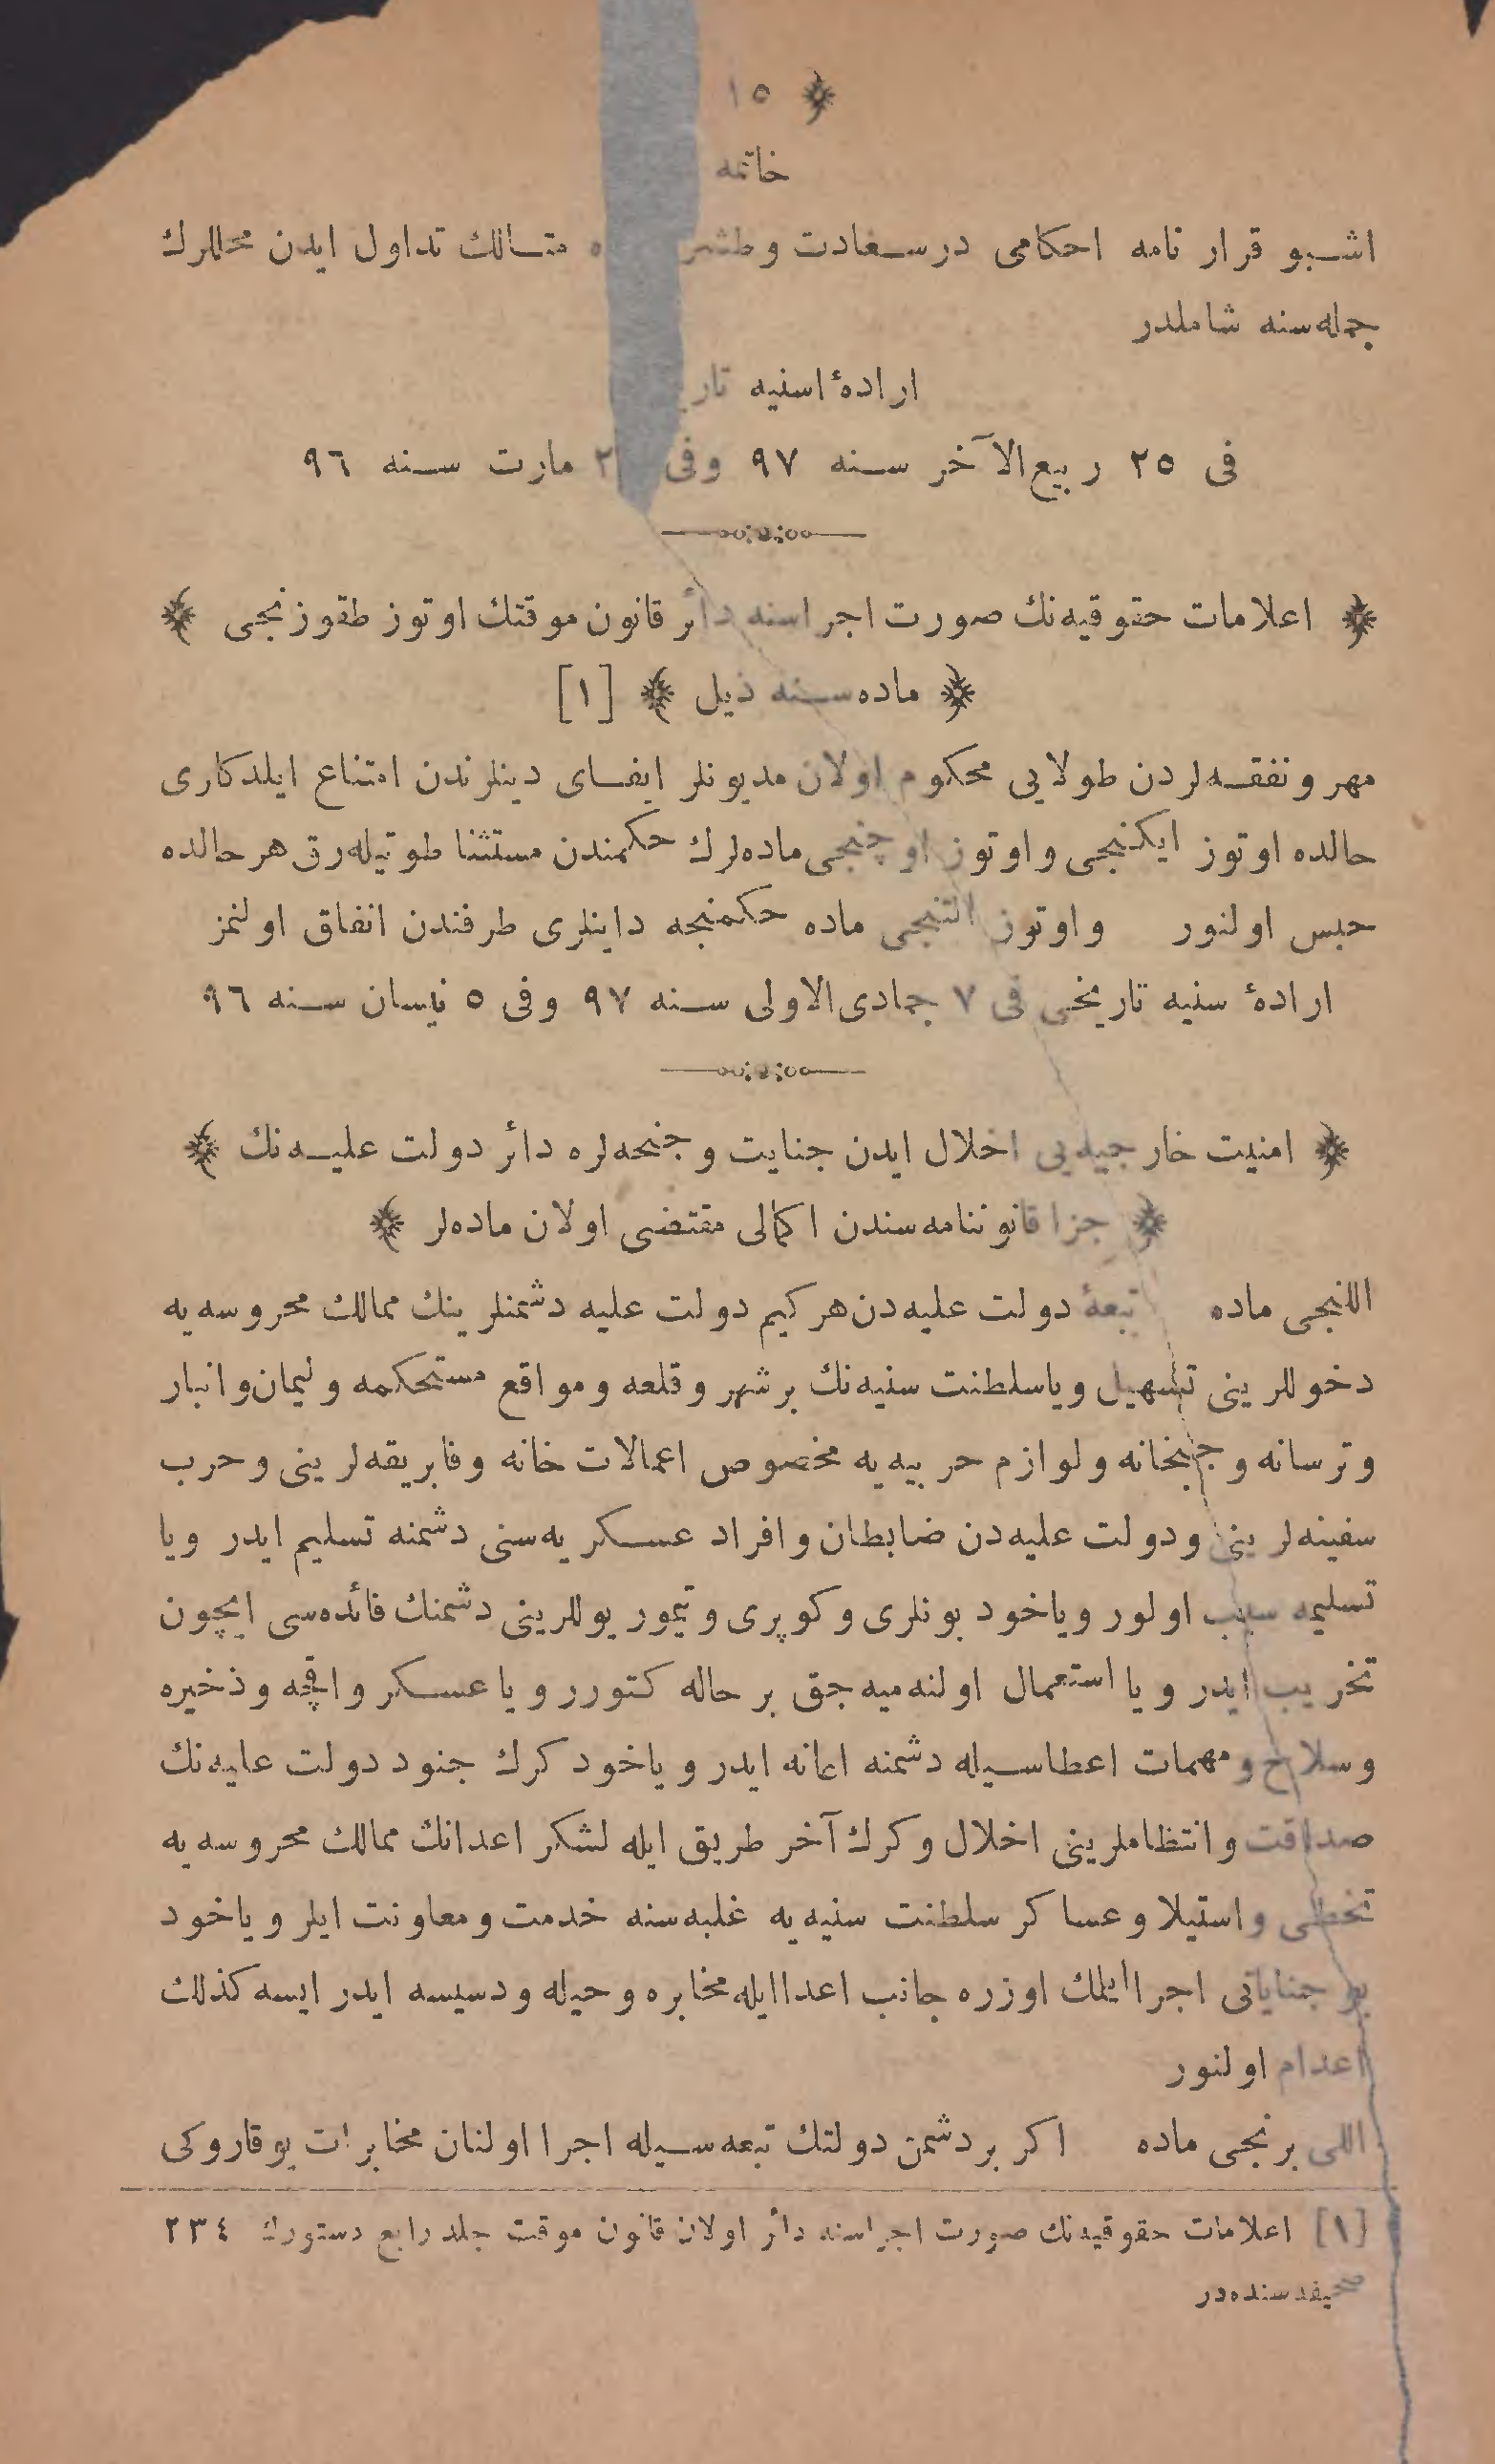 ١٥
خاتمه
اشبو قرار نامه احكامى درسعادت وطشر ه متالك تداول ايدن محللرك
جمله‌سنه شاملدر
ارادهٔ اسنيه تار
فى ٢٥ ربيع‌الآخر سنه ٩٧ وفى ٢ مارت سنه ٩٦
اعلامات حقوقيه‌نك صورت اجراسنه دائر قانون موقتك اوتوز طقوزنجى
ماده‌سنه ذيل [١]
مهر ونفقه‌لردن طولايى محكوم اولان مديونلر ايفاى دينلرندن امتناع ايلدكلرى
حالده اوتوز ايكنجى واوتوز اوچنجى ماده‌لرك حكمندن مستثنا طوتيله‌رق هر حالده
حبس اولنور واوتوز التنجى ماده حكمنجه داينلرى طرفندن انفاق اولنمز
ارادهٔ سنيه تاريخى فى ٧ جمادى‌الاولى سنه ٩٧ وفى ٥ نيسان سنه ٩٦
امنيت خارجيه‌يى اخلال ايدن جنايت وجنحه‌لره دائر دولت عليه‌نك
جزا قانوننامه‌سندن اكمالى مقتضى اولان ماده‌لر
اللنجى ماده تبعهٔ دولت عليه‌دن هركيم دولت عليه دشمنلرينك ممالك محروسه‌يه
دخوللرينى تسهيل وياسلطنت سنيه‌نك برشهر وقلعه ومواقع مستحكمه وليمان وانبار
وترسانه وجبخانه ولوازم حربيه‌يه مخصوص اعمالات خانه وفابريقه‌لرينى وحرب
سفينه‌لرينى ودولت عليه‌دن ضابطان وافراد عسكريه‌سنى دشمنه تسليم ايدر ويا
تسليمه سبب اولور وياخود بونلرى وكوپرى وتيمور يوللرينى دشمنك فائده‌سى ايچون
تخريب ايدر ويا استعمال اولنه‌ميه‌جق بر حاله كتورر ويا عسكر واقچه وذخيره
وسلاح ومهمات اعطاسيله دشمنه اعانه ايدر وياخود كرك جنود دولت عليه‌نك
صداقت وانتظاملرينى اخلال وكرك آخر طريق ايله لشكر اعدانك ممالك محروسه‌يه
تخطى واستيلا وعساكر سلطنت سنيه‌يه غلبه‌سنه خدمت ومعاونت ايلر وياخود
بو جناياتى اجرا ايلمك اوزره جانب اعدا ايله مخابره وحيله ودسيسه ايدر ايسه كذلك
اعدام اولنور
اللى برنجى ماده اكر بردشمن دولتك تبعه‌سيله اجرا اولنان مخابرات يوقاروكى
[١] اعلامات حقوقيه‌نك صورت اجراسنه دائر اولان قانون موقت جلد رابع دستورك ٢٣٤
صحيفه‌سنده‌در